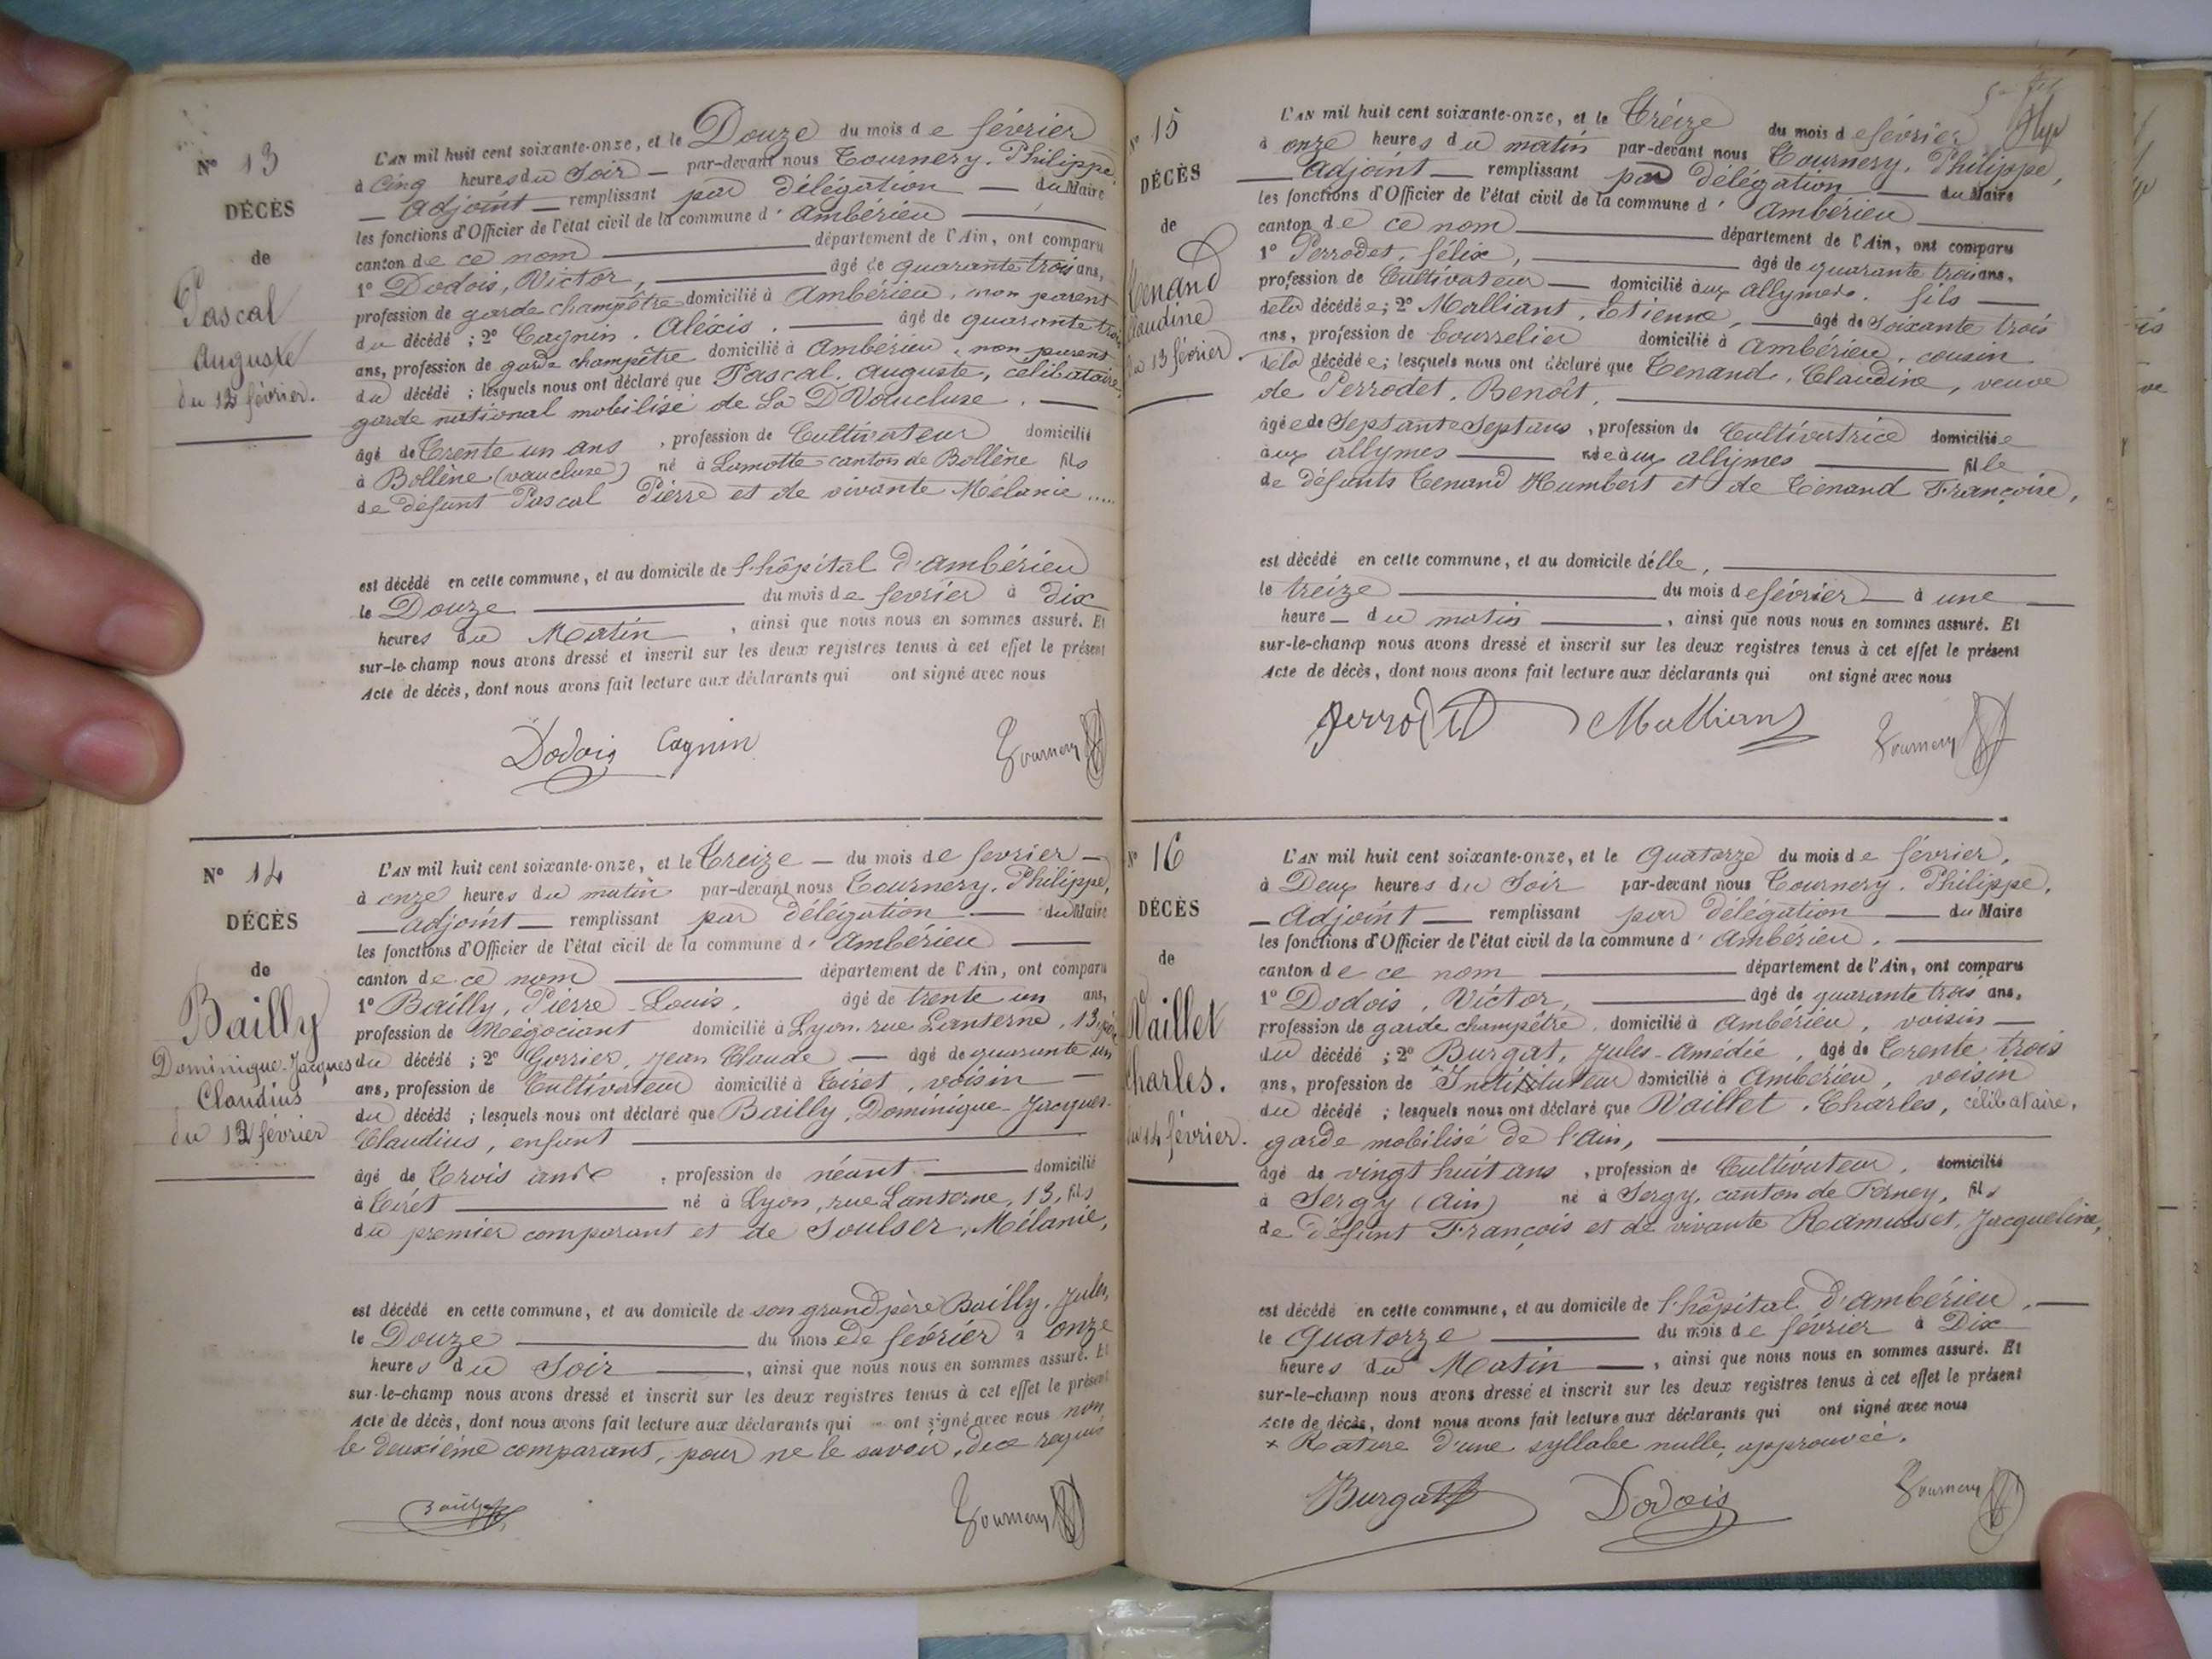 Nº 13
DÉCÈS
de
Pascal
Auguste
du 12 février.
L'AN mil huit cent soixante-onze, et le Douze du mois de février
à Cinq heures du Soir par-devant nous Tournery, Philippe,
Adjoint remplissant par délégation du Maire
les fonctions d'Officier de l'état civil de la commune d' Ambérieu
canton de ce nom département de l'Ain, ont comparu
1º Dodois, Victor, âgé de quarante trois ans,
profession de garde champêtre domicilié à Ambérieu, non parent
du décédé ; 2º Cagnin, Aléxis, âgé de quarante trois
ans, profession de garde champêtre domicilié à Ambérieu, non parent
du décédé ; lesquels nous ont déclaré que Pascal, Auguste, célibataire,
garde national mobilisé de La D Vaucluse.
âgé de Trente un ans, profession de Cultivateur domicilié
à Bollène (vaucluse) né à Lamotte canton de Bollène fils
de défunt Pascal Pierre et de vivante Mélanie .....
est décédé en cette commune, et au domicile de l'hôpital d'Ambérieu
le Douze du mois de fevrier à dix
heures du Matin, ainsi que nous nous en sommes assuré. Et
sur-le-champ nous avons dressé et inscrit sur les deux registres tenus à cet effet le présent
Acte de décès, dont nous avons fait lecture aux déclarants qui ont signé avec nous
Dodois Cagnin Tournery
Nº 14
DÉCÈS
de
Bailly
Dominique-Jacques
Claudius
du 12 février
L'AN mil huit cent soixante-onze, et le Treize du mois de fevrier
à onze heures du matin par-devant nous Tournery, Philippe,
adjoint remplissant par délégation du Maire
les fonctions d'Officier de l'état civil de la commune d' Ambérieu
canton de ce nom département de l'Ain, ont comparu
1º Bailly, Pierre-Louis, âgé de trente un ans,
profession de Négociant domicilié à Lyon, rue Lanterne, 13, père
du décédé ; 2º Gorrier, Jean Claude âgé de quarante un
ans, profession de Cultivateur domicilié à Tiret, voisin
du décédé ; lesquels nous ont déclaré que Bailly, Dominique-Jacques-
Claudius, enfant
âgé de Trois ans, profession de néant domicilié
à Tiret né à Lyon, rue Lanterne, 13, fils
du premier comparant et de Soulser, Mélanie,
est décédé en cette commune, et au domicile de son grand père Bailly, Jules,
le Douze du mois de février à onze
heures du Soir, ainsi que nous nous en sommes assuré. Et
sur-le-champ nous avons dressé et inscrit sur les deux registres tenus à cet effet le présent
Acte de décès, dont nous avons fait lecture aux déclarants qui ont signé avec nous non
le deuxième comparant, pour ne le savoir, de ce requis
Bailly Tournery
Nº 15
DÉCÈS
de
Tenand
Claudine
du 13 février.
L'AN mil huit cent soixante-onze, et le Tréize du mois de février
à onze heures du matin par-devant nous Tournery, Philippe,
Adjoint remplissant par délégation du Maire
les fonctions d'Officier de l'état civil de la commune d' Ambérieu
canton de ce nom département de l'Ain, ont comparu
1º Perrodet, félix, âgé de quarante trois ans,
profession de Cultivateur domicilié aux allymes, fils
de la décédée ; 2º Malliant, Etienne, âgé de Soixante trois
ans, profession de bourrelier domicilié à Ambérieu, cousin
de la décédée ; lesquels nous ont déclaré que Tenand, Claudine, veuve
de Perrodet, Benoît,
âgée de Septante Sept ans, profession de Cultivatrice domiciliée
aux allymes née aux allymes fille
de défunts Tenand Humbert et de Tenand Françoise,
est décédé en cette commune, et au domicile d'elle,
le treize du mois de février à une
heure du matin, ainsi que nous nous en sommes assuré. Et
sur-le-champ nous avons dressé et inscrit sur les deux registres tenus à cet effet le présent
Acte de décès, dont nous avons fait lecture aux déclarants qui ont signé avec nous
Perrodet Malliant Tournery
Nº 16
DÉCÈS
de
Vaillet
Charles.
du 14 février.
L'AN mil huit cent soixante-onze, et le Quatorze du mois de février,
à Deux heures du Soir par-devant nous Tournery, Philippe,
Adjoint remplissant par délégation du Maire
les fonctions d'Officier de l'état civil de la commune d' Ambérieu,
canton de ce nom département de l'Ain, ont comparu
1º Dodois, Victor, âgé de quarante trois ans,
profession de garde champêtre, domicilié à Ambérieu, voisin
du décédé ; 2º Burgat, Jules-Amédée, âgé de Trente trois
ans, profession de Instituteur domicilié à Ambérieu, voisin
du décédé ; lesquels nous ont déclaré que Vaillet, Charles, célibataire,
garde mobilisé de l'Ain,
âgé de vingt huit ans, profession de Cultivateur, domicilié
à Sergy (Ain) né à Sergy, canton de Ferney, fils
de défunt François et de vivante Ramusset, Jacqueline,
est décédé en cette commune, et au domicile de l'hôpital d'Ambérieu,
le Quatorze du mois de février à Dix
heures du Matin, ainsi que nous nous en sommes assuré. Et
sur-le-champ nous avons dressé et inscrit sur les deux registres tenus à cet effet le présent
Acte de décès, dont nous avons fait lecture aux déclarants qui ont signé avec nous
+ Rature d'une syllabe nulle, approuvée.
Burgat Dodois Tournery